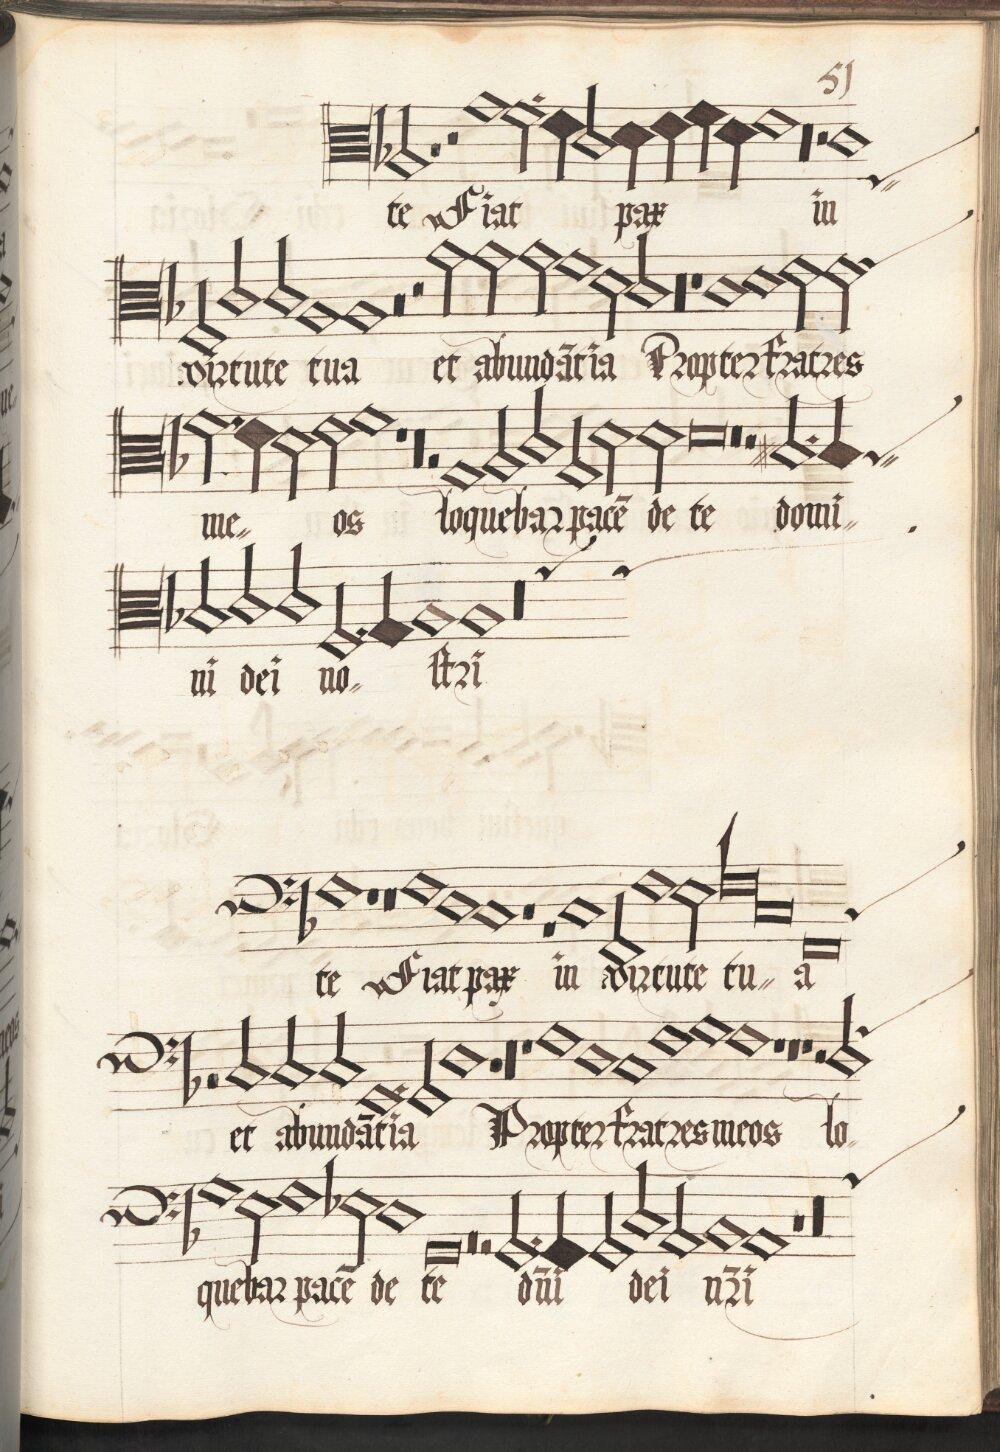 51
te Fiat pax in
virtute tua et abundātia Propter fratres
me〃 os loquebar pacē de te domi〃
ni dei no〃 stri
te Fiat pax in virtute tu〃 a
et abundātia Propter fratres meos lo〃
quebar pacē de te dn̄i dei nr̄i